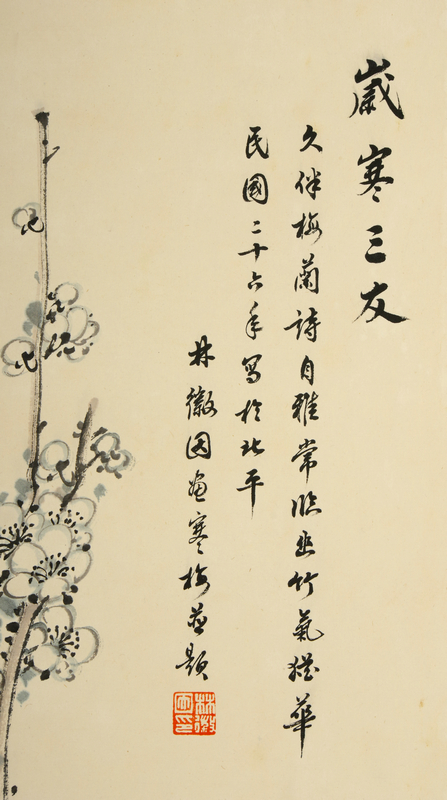 歲寒三友
久伴梅蘭詩自雅常臨幽竹氣猶華
民國二十六年寫於北平
林徽因畫寒梅並題
林徽因印